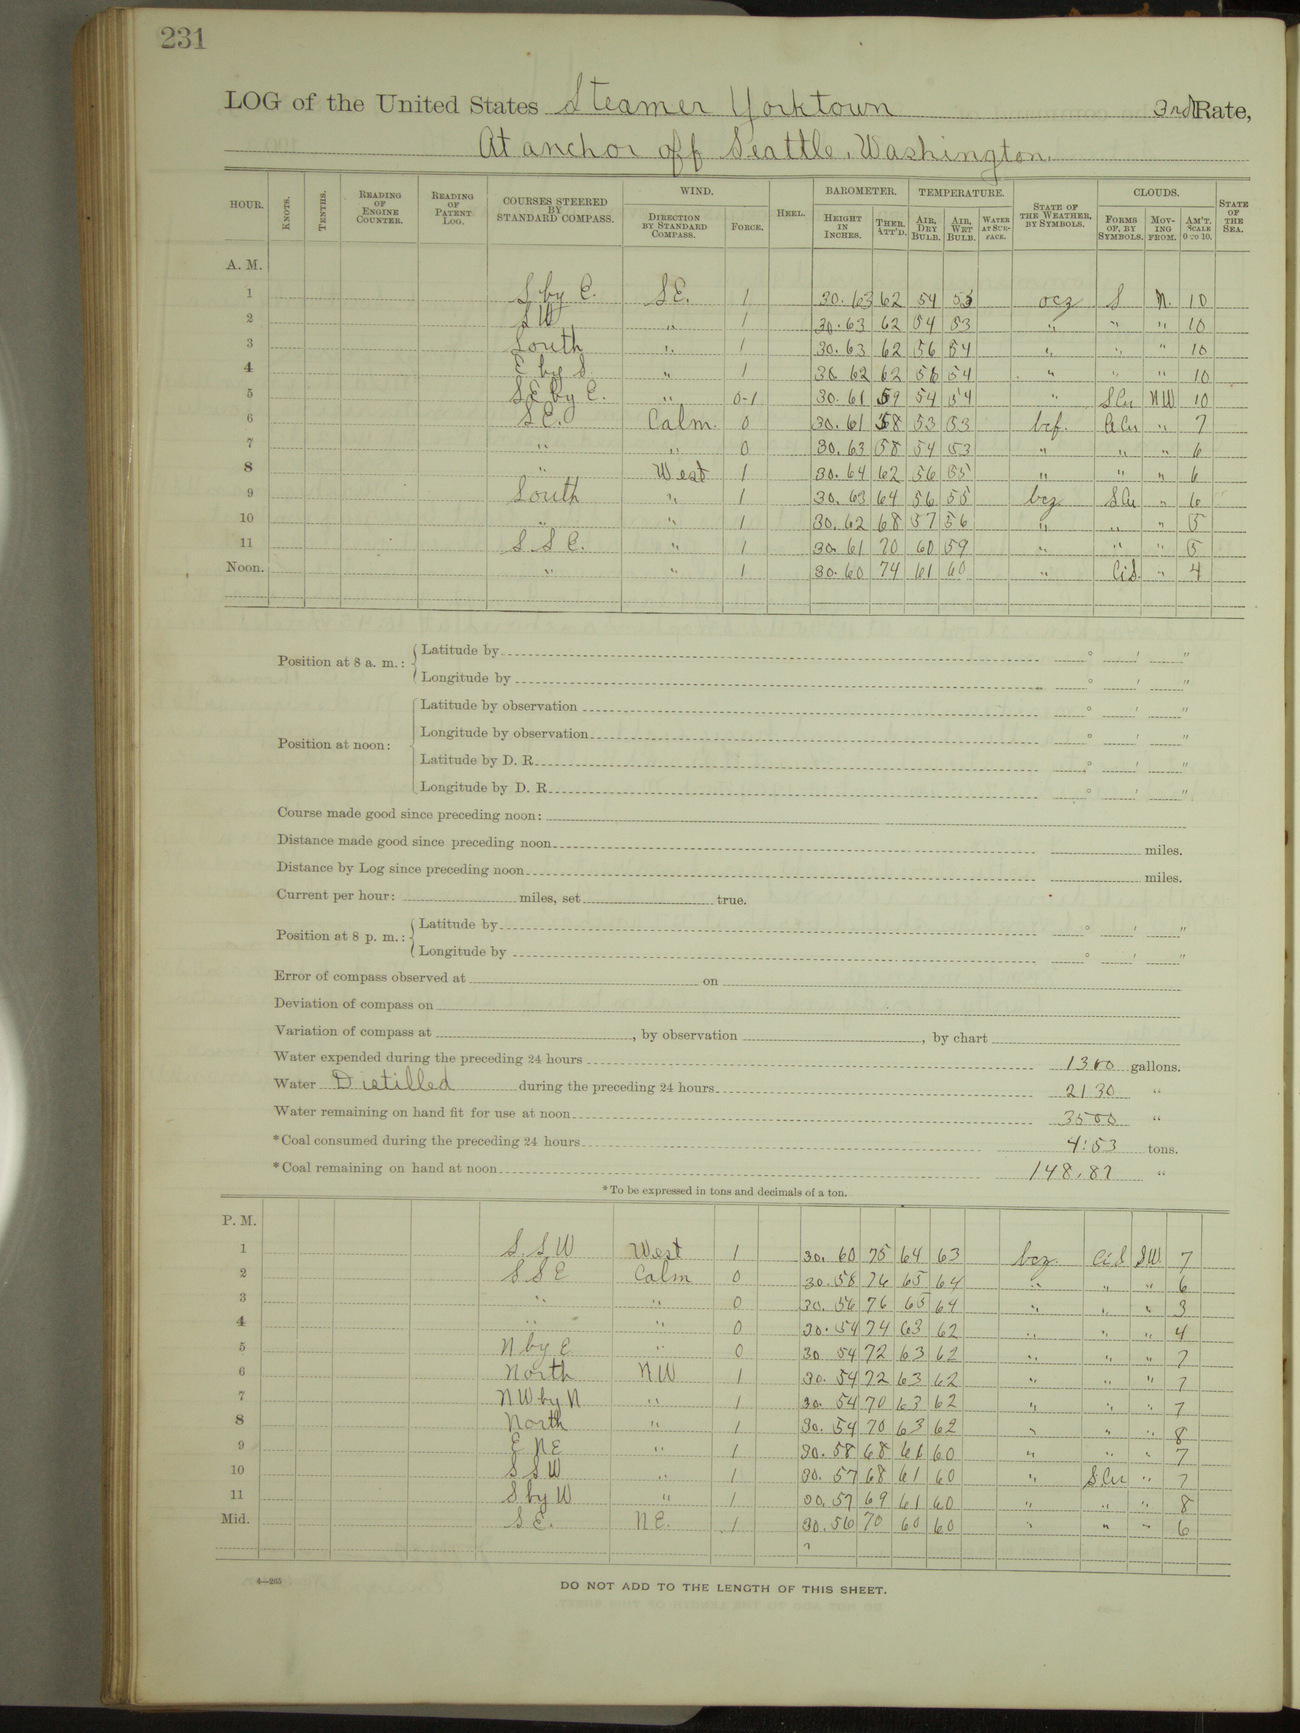 231
LOG of the United States Steamer Yorktown 3rd Rate,
At anchor off Seattle, Washington.
HOUR. KNOTS. TENTHS. READING OF ENGINE COUNTER. READING OF PATENT LOG. COURSES STEERED BY STANDARD COMPASS. WIND. DIRECTION BY STANDARD COMPASS. FORCE. HEEL. BAROMETER. HEIGHT IN INCHES. THER. ATT'D. TEMPERATURE. AIR, DRY BULB. AIR, WET BULB. WATER AT SURFACE. STATE OF THE WEATHER, BY SYMBOLS. CLOUDS. FORMS OF, BY SYMBOLS. MOVING FROM. AM'T. SCALE 0 TO 10. STATE OF THE SEA.
A. M.
1 S by E. SE. 1 30.63 62 54 53 ocz S N. 10
2 SW " 1 30.63 62 54 53 " " " 10
3 South " 1 30.63 62 56 54 " " " 10
4 E by S " 1 30 62 62 56 54 " " " 10
5 SE by E. " 0-1 30.61 59 54 54 " S Cu NW 10
6 SE. Calm. 0 30.61 58 53 53 bcf. A Cu " 7
7 " " 0 30.63 58 54 53 " " " 6
8 " West 1 30.64 62 56 55 " " " 6
9 South " 1 30.63 64 56 55 bcz S Cu " 6
10 " " 1 30.62 68 57 56 " " " 5
11 S S E. " 1 30.61 70 60 59 " " " 5
Noon. " " 1 30.60 74 61 60 " Ci S. " 4
Position at 8 a. m.: Latitude by ° ′ ″
Longitude by ° ′ ″
Position at noon: Latitude by observation ° ′ ″
Longitude by observation ° ′ ″
Latitude by D. R. ° ′ ″
Longitude by D. R. ° ′ ″
Course made good since preceding noon:
Distance made good since preceding noon miles.
Distance by Log since preceding noon miles.
Current per hour: miles, set true.
Position at 8 p. m.: Latitude by ° ′ ″
Longitude by ° ′ ″
Error of compass observed at on
Deviation of compass on
Variation of compass at , by observation , by chart
Water expended during the preceding 24 hours gallons.
Water Distilled during the preceding 24 hours 2130 "
Water remaining on hand fit for use at noon 3500 "
*Coal consumed during the preceding 24 hours 4.53 tons.
*Coal remaining on hand at noon 148.87 "
*To be expressed in tons and decimals of a ton.
P. M.
1 S. S W West 1 30. 60 75 64 63 bcz. Ci S SW. 7
2 S S E Calm 0 30.58 76 65 64 " " " 6
3 " " 0 30. 56 76 65 64 " " " 3
4 " " 0 30.54 74 63 62 " " " 4
5 N by E " 0 30 54 72 63 62 " " " 7
6 North NW 1 30. 54 72 63 62 " " " 7
7 NW by N " 1 30. 54 70 63 62 " " " 7
8 North " 1 30. 54 70 63 62 " " " 8
9 E NE " 1 30.58 68 61 60 " " " 7
10 S S W " 1 30. 57 68 61 60 " S Cu " 7
11 S by W " 1 30.57 69 61 60 " " " 8
Mid. S E. NE. 1 30.56 70 60 60 " " " 6
4—265
DO NOT ADD TO THE LENGTH OF THIS SHEET.